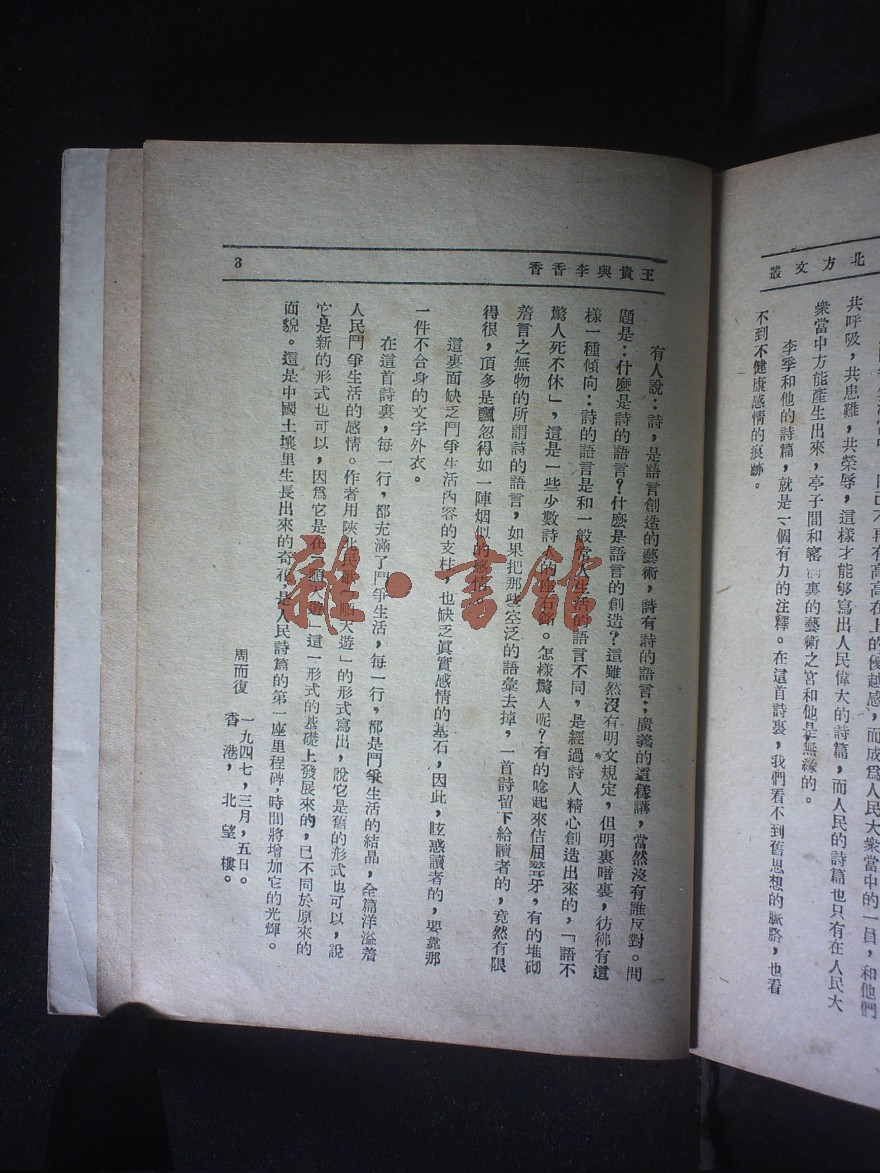 北方文叢
共呼吸，共患難，共榮辱，這樣才能够寫出人民偉大的詩篇，而人民的詩篇也只有在人民大
衆當中方能產生出來，亭子間和窰洞裏的藝術之宮和他是無緣的。
李季和他的詩篇，就是一個有力的注釋。在這首詩裏，我們看不到舊思想的脈胳，也看
不到不健康感情的痕跡。
王貴與李香香
3
有人說：詩，是語言創造的藝術，詩有詩的語言；廣義的這樣講，當然沒有誰反對。問
題是：什麼是詩的語言？什麼是語言的創造？這雖然沒有明文規定，但明裏暗裏，彷彿有這
樣一種傾向：詩的語言是和一般常人生活的語言不同，是經過詩人精心創造出來的，「語不
驚人死不休」，這是一些少數詩人的座右銘。怎樣驚人呢？有的唸起來佶屈聱牙，有的堆砌
着言之無物的所謂詩的語言，如果把那些空泛的語彙去掉，一首詩留下給讀者的，竟然有限
得很，頂多是飄忽得如一陣烟似的感情。
這裏面缺乏鬥爭生活內容的支柱，也缺乏眞實感情的基石，因此，眩惑讀者的，要靠那
一件不合身的文字外衣。
在這首詩裏，每一行，都充滿了鬥爭生活，每一行，都是鬥爭生活的結晶，全篇洋溢着
人民鬥爭生活的感情。作者用陝北民歌「順天遊」的形式寫出，說它是舊的形式也可以，說
它是新的形式也可以，因爲它是在「順天遊」這一形式的基礎上發展來的，已不同於原來的
面貌。這是中國土壤里生長出來的奇花，是人民詩篇的第一座里程碑，時間將增加它的光輝。
周而復　一九四七，三月，五日。
香港，北望樓。
雜·書館